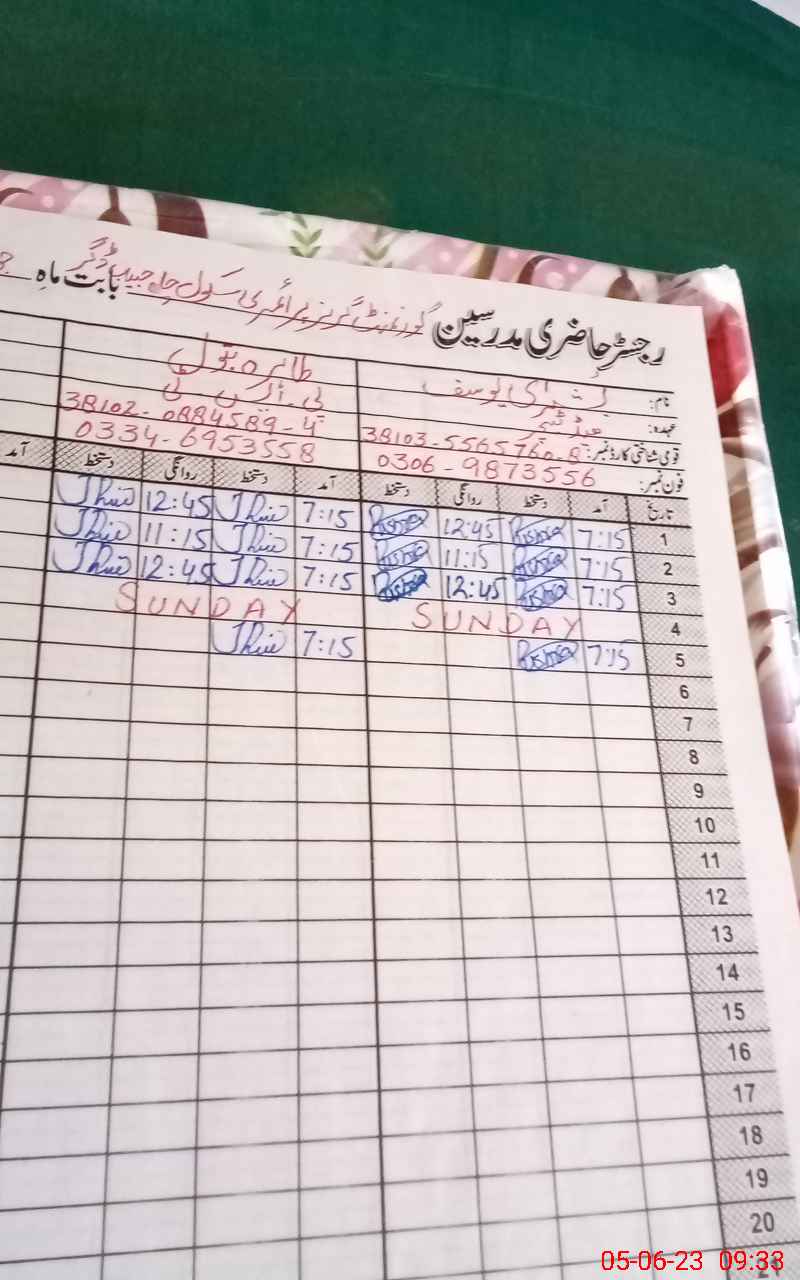 رجسٹر حاضری مدرسین گورنمنٹ گرلز پرائمری سکول چاہ حبیب ڈگر بابت ماہِ
نام: بشریٰ یوسف طاہرہ بتول
عہدہ: ہیڈ ٹیچر پی۔ایس۔ٹی
قومی شناختی کارڈ نمبر: 38103-5565760-8 38102-0884589-4
فون نمبر: 0306-9873556 0334-6953558
تاریخ آمد دستخط روانگی دستخط آمد دستخط روانگی دستخط آمد
1 7:15 Bushra 12:45 Bushra 7:15 12:45
2 7:15 Bushra 11:15 Bushra 7:15 11:15
3 7:15 Bushra 12:45 Bushra 7:15 12:45
4 SUNDAY SUNDAY
5 7:15 Bushra 7:15
6
7
8
9
10
11
12
13
14
15
16
17
18
19
20
21
05-06-23 09:33